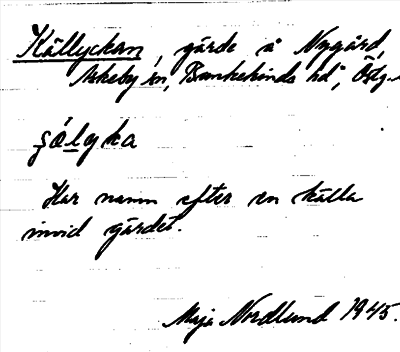 Källyckan, gärde å Nygård,
Askeby sn, Bankekinds hd, Östg.
sályka
Har namn efter en källa
invid gärdet.
Maja Nordlund 1945.